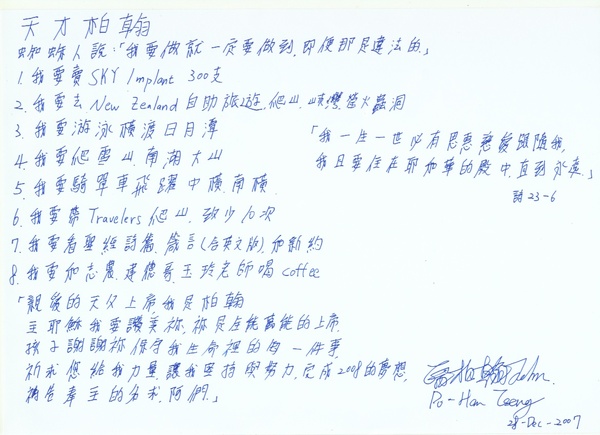 天才柏翰
蜘蛛人說：「我要做就一定要做到，即便那是違法的」
1. 我要賣 SKY Implant 300支
2. 我要去 New Zealand 自助旅遊，爬山，峽灣，螢火蟲洞
3. 我要游泳橫渡日月潭
4. 我要爬雪山，南湖大山
5. 我要騎單車飛躍中橫，南橫
6. 我要帶 Travelers 爬山，致少10次
7. 我要看聖經詩篇，箴言(含英文版)，和新約
8. 我要和志農，建德哥，玉玲老師喝 coffee
「我一生一世必有恩惠慈愛跟隨我，
我且要住在耶和華的殿中，直到永遠」
詩 23-6
「親愛的天父上帝我是柏翰
主耶穌我要讚美祢，祢是全能萬能的上帝
孩子謝謝祢保守我生命裡的每一件事
祈求您給我力量，讓我堅持與努力，完成2008的夢想，
禱告奉主的名求，阿們。」
柏翰 John.
Po-Han Tseng
28-Dec-2007